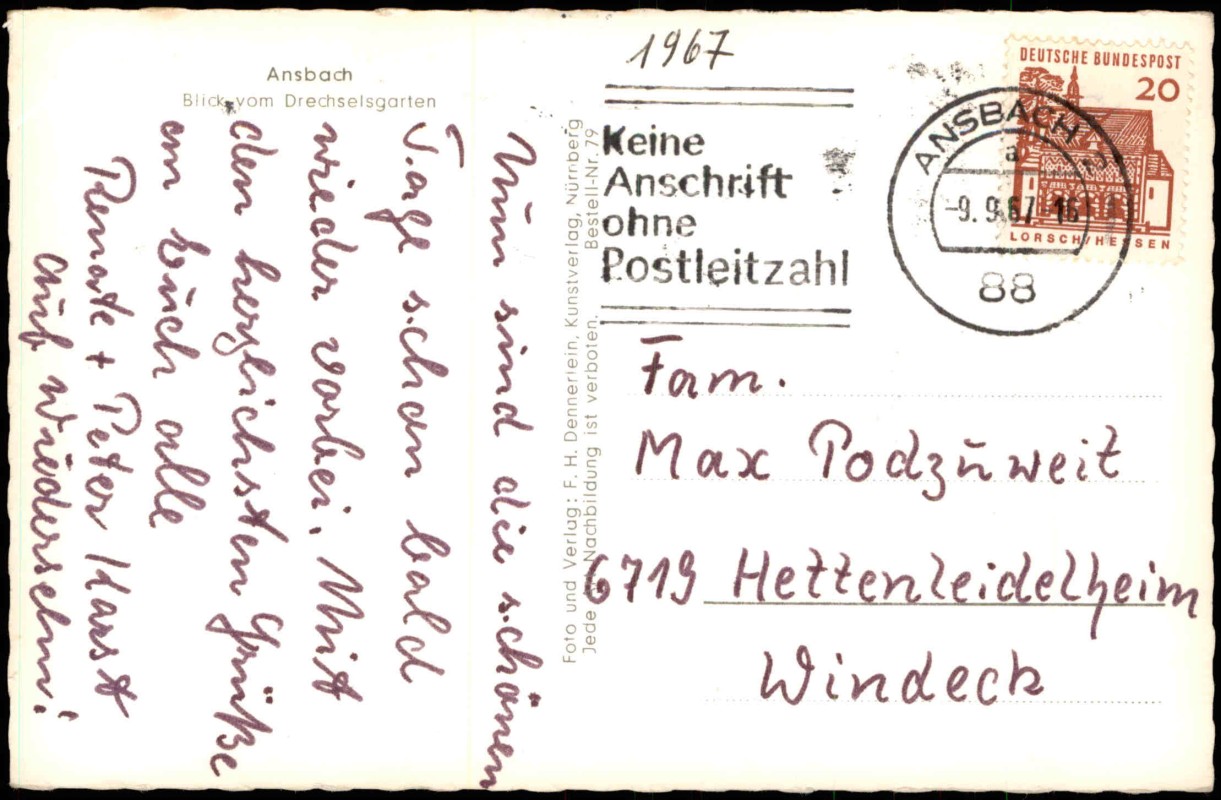 Ansbach
Blick vom Drechselsgarten
Nun sind die schönen
Tage schon bald
wieder vorbei. Mit
den herzlichsten Grüße
an Euch alle
Renate + Peter Karst
auf wiedersehn!
Foto und Verlag: F. H. Dennerlein, Kunstverlag, Nürnberg
Jede Nachbildung ist verboten. Bestell-Nr. 79
1967
Keine
Anschrift
ohne
Postleitzahl
ANSBACH
a
-9. 9. 67.-16
88
DEUTSCHE BUNDESPOST
20
LORSCH/HESSEN
Fam.
Max Podzuweit
6719 Hettenleidelheim
Windeck